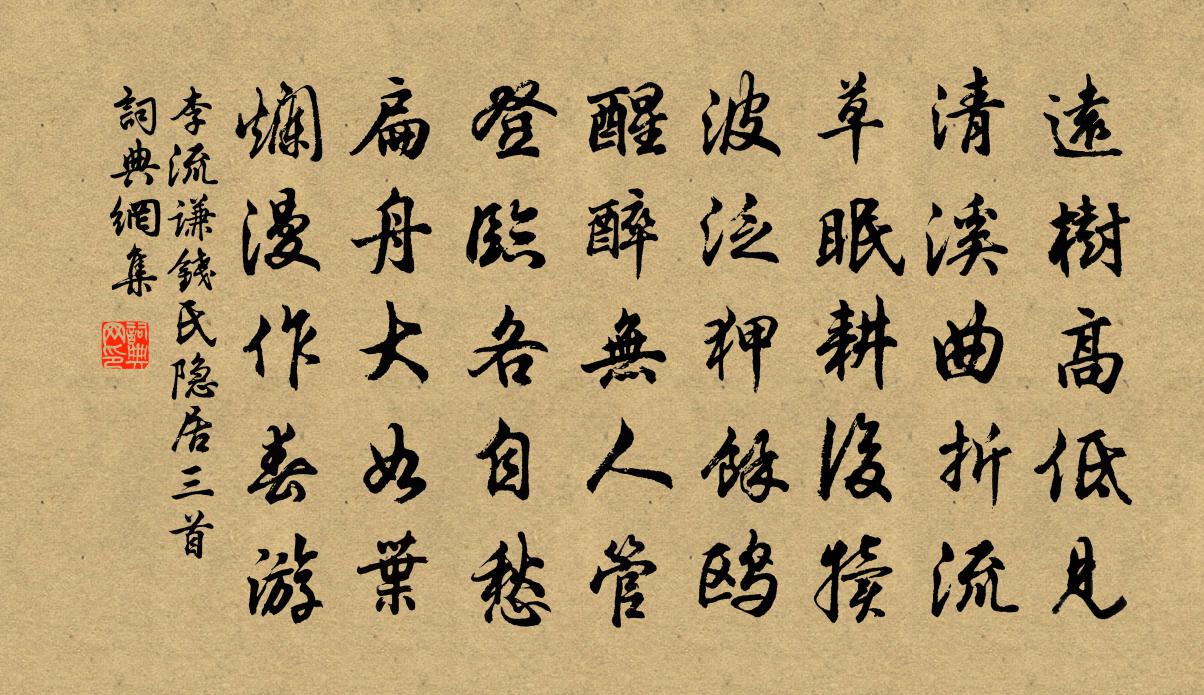 遠樹高低見
清溪曲折流
草眠耕後犢
波泛狎餘鷗
醒醉無人管
登臨各自愁
扁舟大如葉
爛漫作春游
李流谦錢氏隐居三首
詞典網集
詞典网印